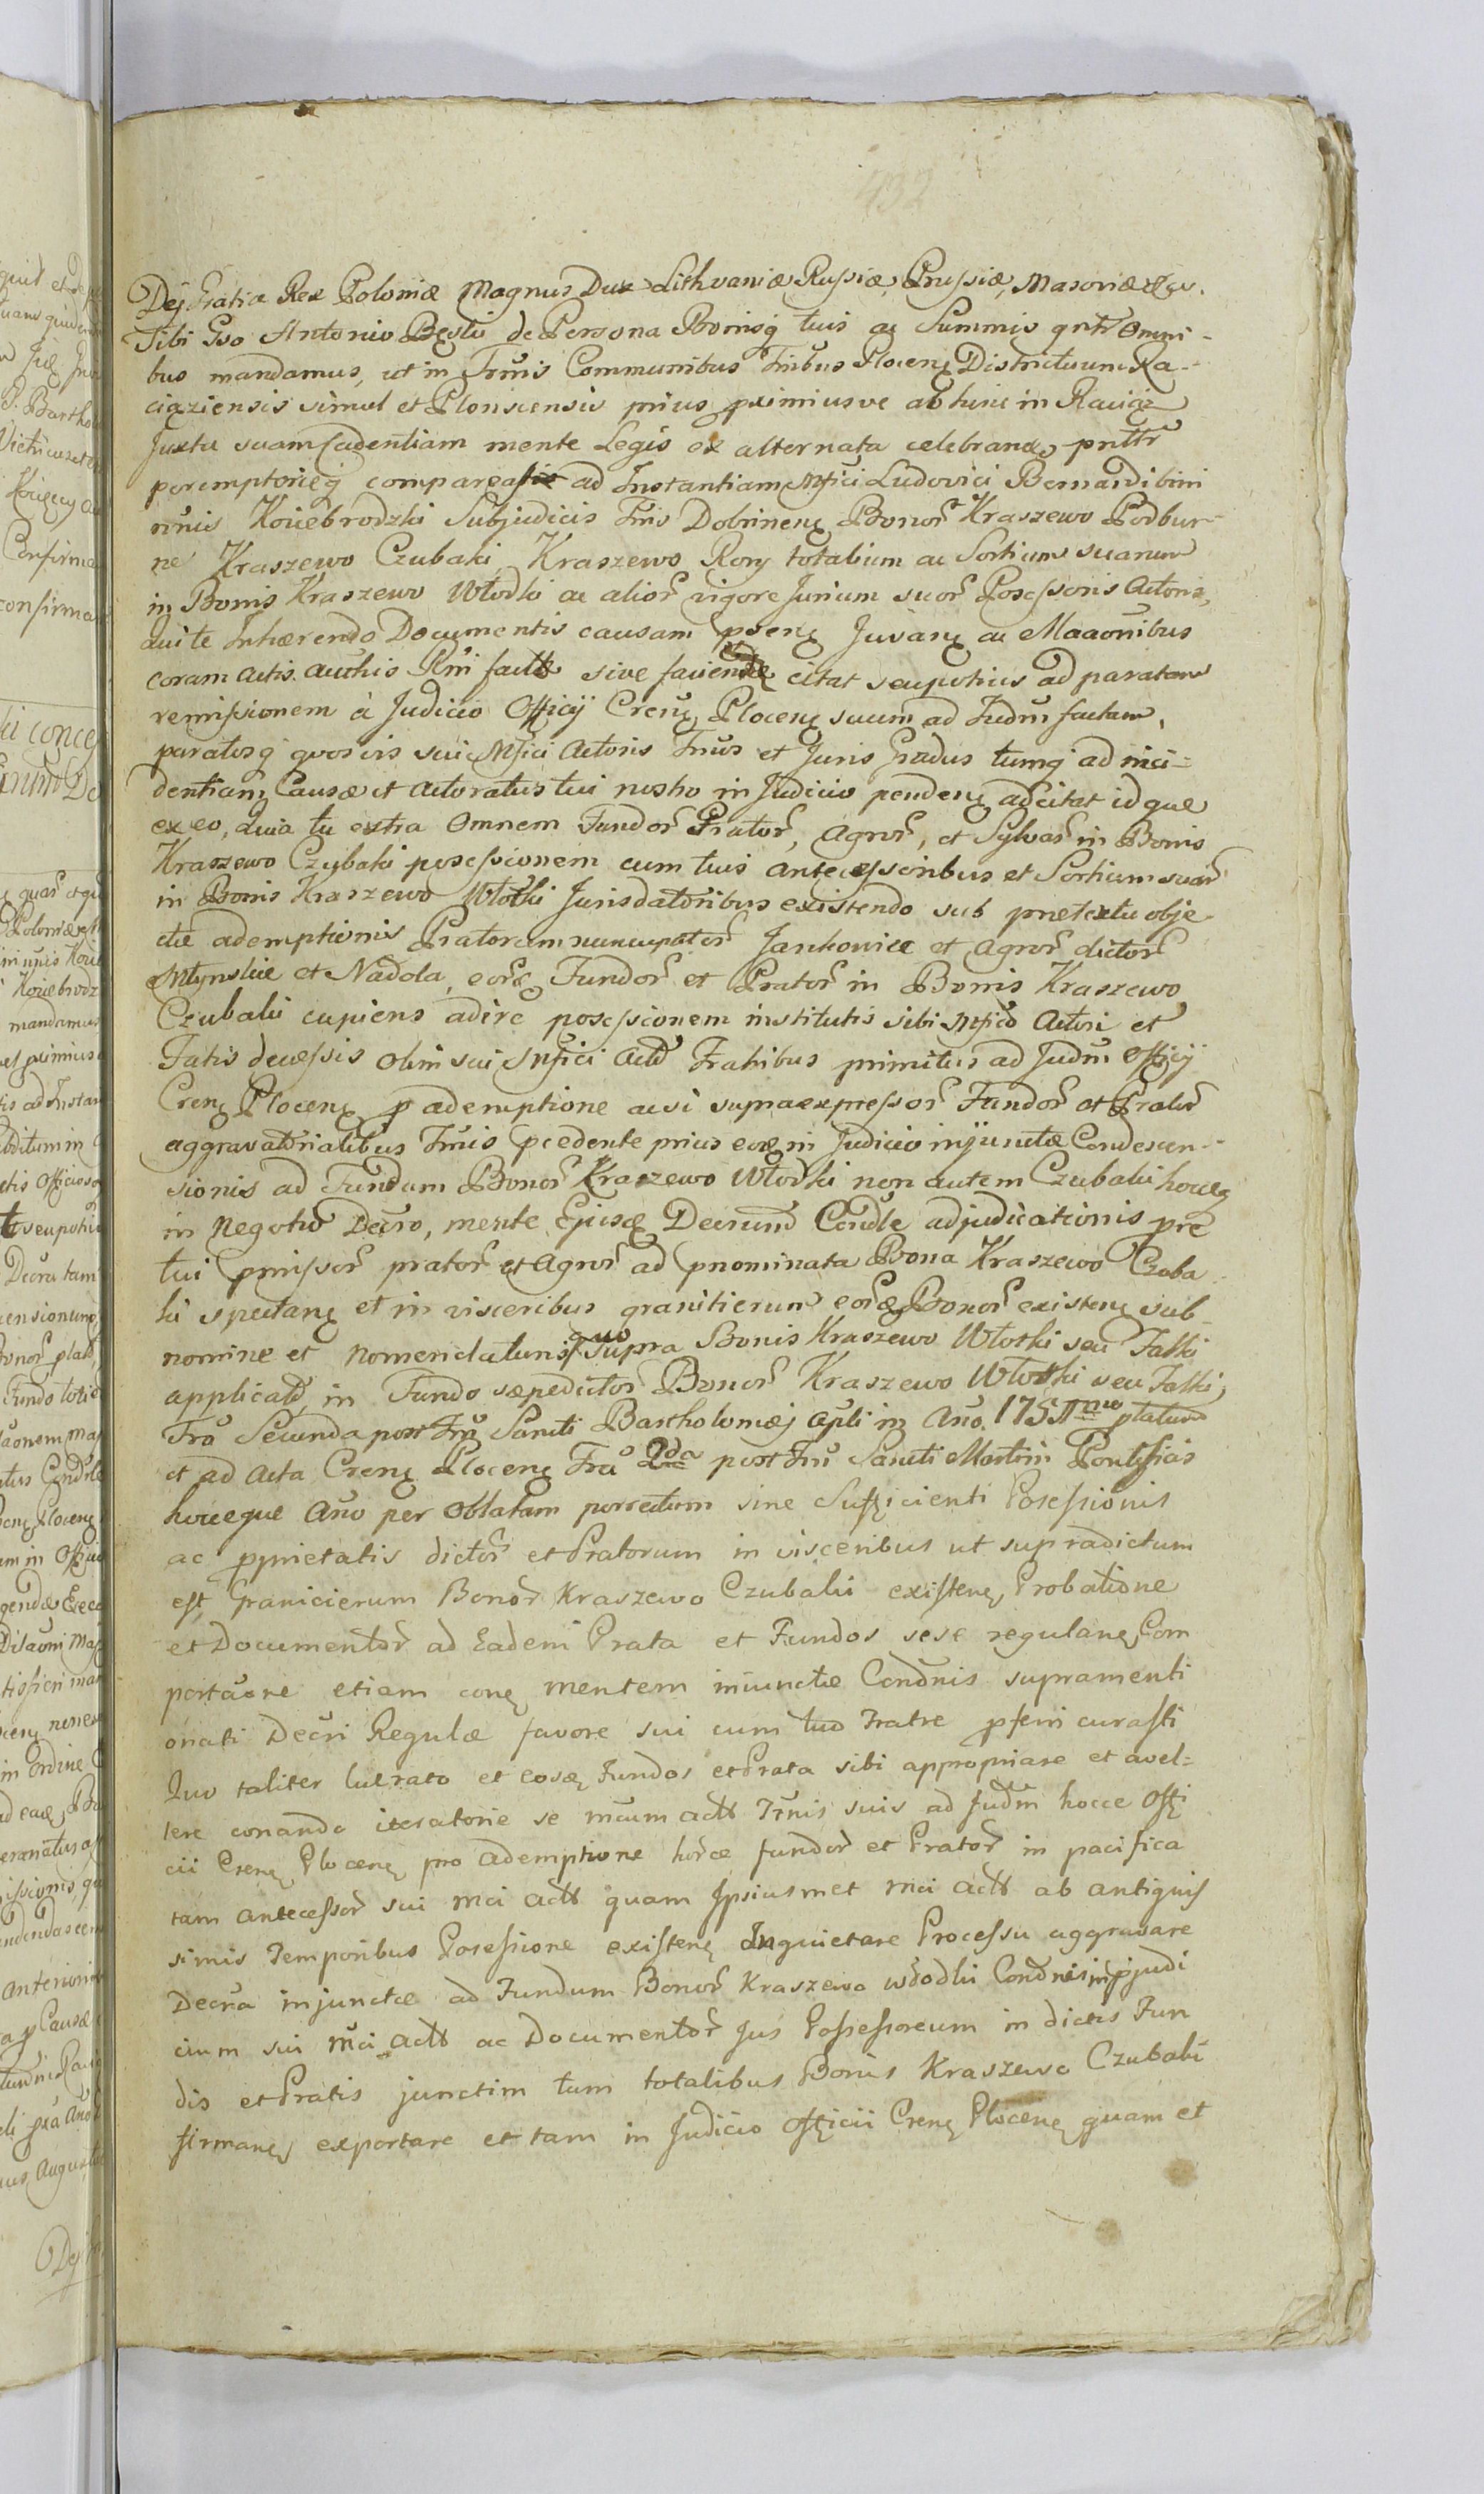 432
Dej Gratia Rex Poloniæ Magnus Dux Lithvaniæ Russiæ, Prussiæ, Masoviæ &cv.
Tibi Gso Antonio Bęski de Persona Bonisq tuis ac Summis gntr Omni-
bus mandamus, ut in Trnis Communibus Tribus Plocenę Districtuum Ra-
ciąziensis simul et Plonscensis prius proximiusve abhinc in Raciąz
Juxta suam Cadentiam mente Legis ex alternata celebrandę pnltr
peremptorieq compareas ad Instantiam Mfici Ludovici Bernardi bini
nnis Koiiebrodzki Subjudicis Tris Dobrinenę Bonor Kraszewo Podbur-
ne Kraszewo Czubaki, Kraszewo Rory totalium ac Sortium suarum
in Bonis Kraszewo Włodki ac alior vigore Jurium suor Possessoris Actoris,
Qui te Inhærendo Documentis causam Juvanę ac
coram Actis Auchis Rni factæ sive faciendæ citat seupotius ad paratam
remissionem à Judicio Officij Crenę Plocenę suum ad Judm factam,
paratosq quosvis sui Mfici Actoris Trnos et Juris Gradus tumq ad inci-
dentiam Causæ et Actoratus tui nostro in Judicio pendenę adcitat idque
ex eo, Quia tu extra Omnem Fundor Prator, Agror, et Sylvar in Bonis
Kraszewo Czubaki possessionem cum tuis Antecessoribus et Sortium suar
in Bonis Kraszewo Włotki Jurisdatoribus existendo sub prætextu obje-
ctæ ademptionis Pratorum nuncupator Jankowice et Agror dictor
Młynskie et Nadola, eorę Fundor et Prator in Bonis Kraszewo
Czubaki cupiens adire possessionem institutis sibi Mfico Actori et
Fatis decessis olim sui Mfici Actt Fratribus primitus ad Judm Officij
Crenę Plocenę p ademptione acsi supraexpressor Fundor et Prator
aggravatorialibus Trnis pcedente prius eoę in Judicio injunctæ Condescen-
sionis ad Fundum Bonor Kraszewo Włodki non autem Czubaki hocceę
in Negotio Decro, mente Ejusę adjudicationis pre
tui pmissor prator et Agror ad pnominata Bona Kraszewo Czuba
ki spectanę et in visceribus granitierum eorę Bonor existenę sub-
nomine et Nomenclaturis quo supra Bonis Kraszewo Włotki seu Falki
applicatt, in Fundo sæpedictor Bonor Kraszewo Włotki seu Falki,
Fra Secunda post Fm Sancti Bartholomæj Apli in Ano. platum
et ad Acta Crenę Plocenę Fra 2da post Fm Sancti Martini Pontificis
hocceque Ano per Oblatam porrectum sine Sufficienti Possessionis
ac pprietatis dictor et Pratorum in visceribus ut supradictum
est Granicierum Bonor Kraszewo Czubaki existenę Probatione
et Documentor ad Eadem Prata et Fundos sese regulanę Com
portaone etiam conę mentem iniunctæ Condnis supramenti
onati Decri Regulæ favore sui cum tuo Fratre pferri curasti
Quo taliter lucrato et eosę Fundos et Prata sibi appropriare et avel=
lere conando iteratorie se mcum Actt Trnis suis ad Judm hocce Offi
cii Crenę Plocenę pro ademptione horce fundor et Prator in pacifica
tam antecessor sui mci Actt quam Ipsiusmet mci Actt ab antiquis
simis Temporibus Possessione existenę Inquietare Processu aggravare
Decra injunctæ ad Fundum Bonor Kraszewo Włodki Condnis in pjudi
cium sui mci Actt ac Documentor Jus Possessoreum in dictis Fun
dis et Pratis junctim tum totalibus Bonis Kraszewo Czubaki
firmanę exportare et tam in Judicio Officii Crenę Plocenę quam et